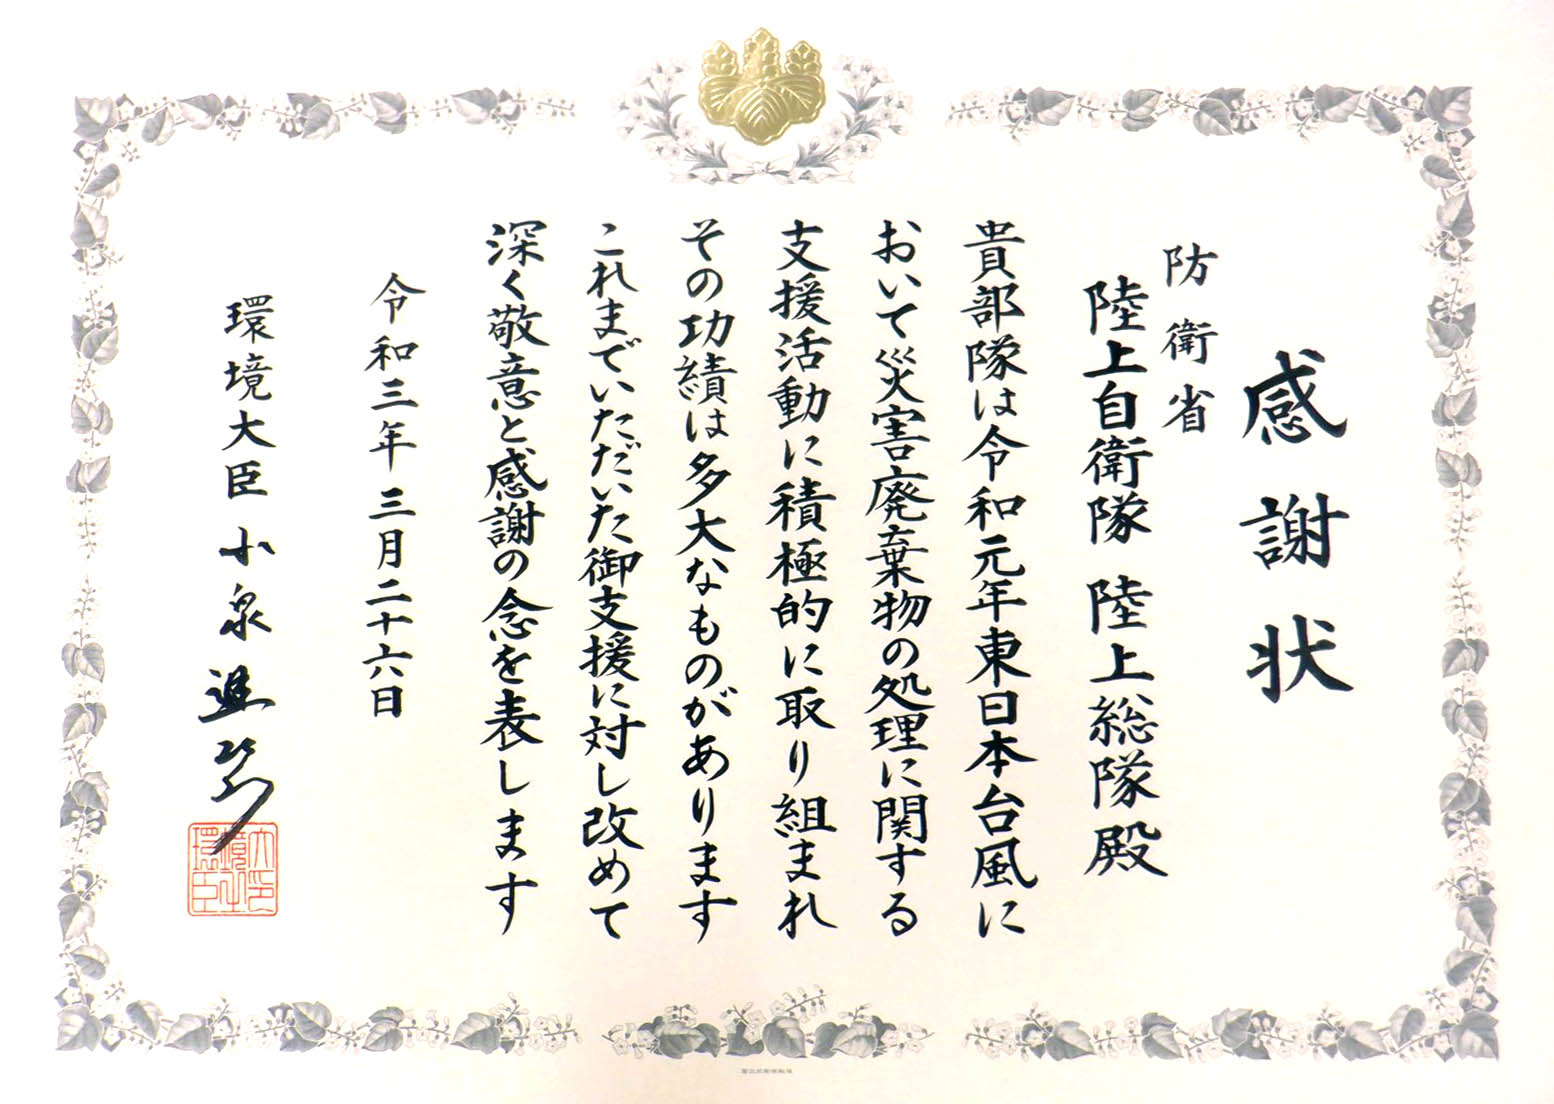 感謝状
防衛省
陸上自衛隊 陸上総隊殿
貴部隊は令和元年東日本台風に
おいて災害廃棄物の処理に関する
支援活動に積極的に取り組まれ
その功績は多大なものがあります
これまでいただいた御支援に対し改めて
深く敬意と感謝の念を表します
令和三年三月二十六日
環境大臣 小泉進次郎
環境大臣之印